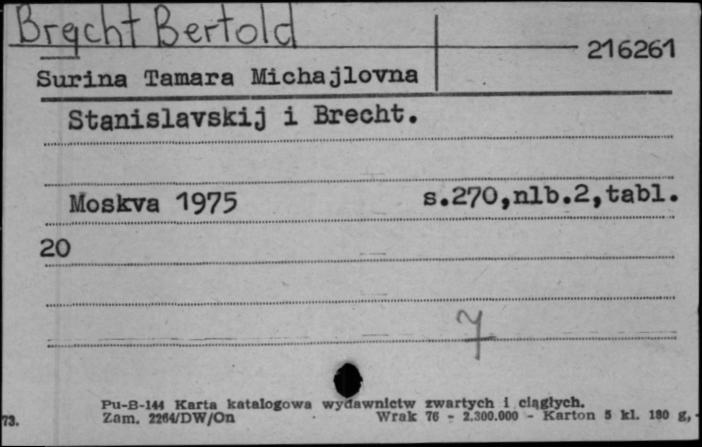 Brecht Bertold
216261
Surina Tamara Michajlovna
Stanislavskij i Brecht.
Moskva 1975 s.270,nlb.2,tabl.
20
7
Pu-B-144 Karta katalogowa wydawnictw zwartych i ciągłych.
73. Zam. 2264/DW/On Wrak 76 - 2.300.000 - Karton 5 kl. 180 g,